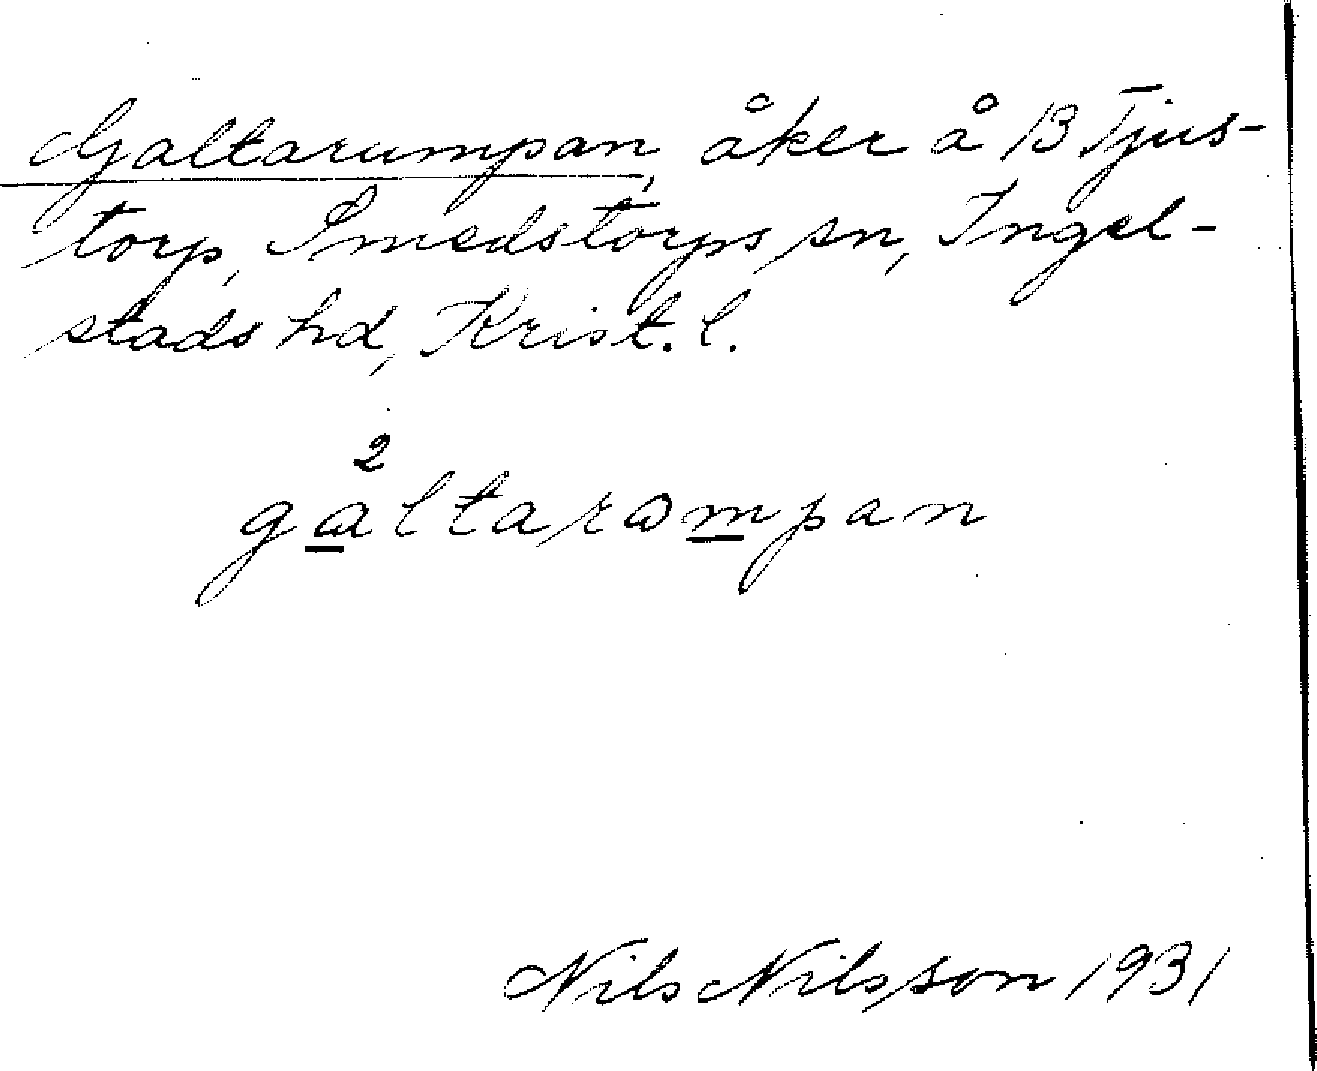 Galtarumpan, åker å 13 Tjus-
torp, Smedstorps sn, Ingel-
stads hd, Krist. l.
2
galtarωmpan
Nils Nilsson 1931